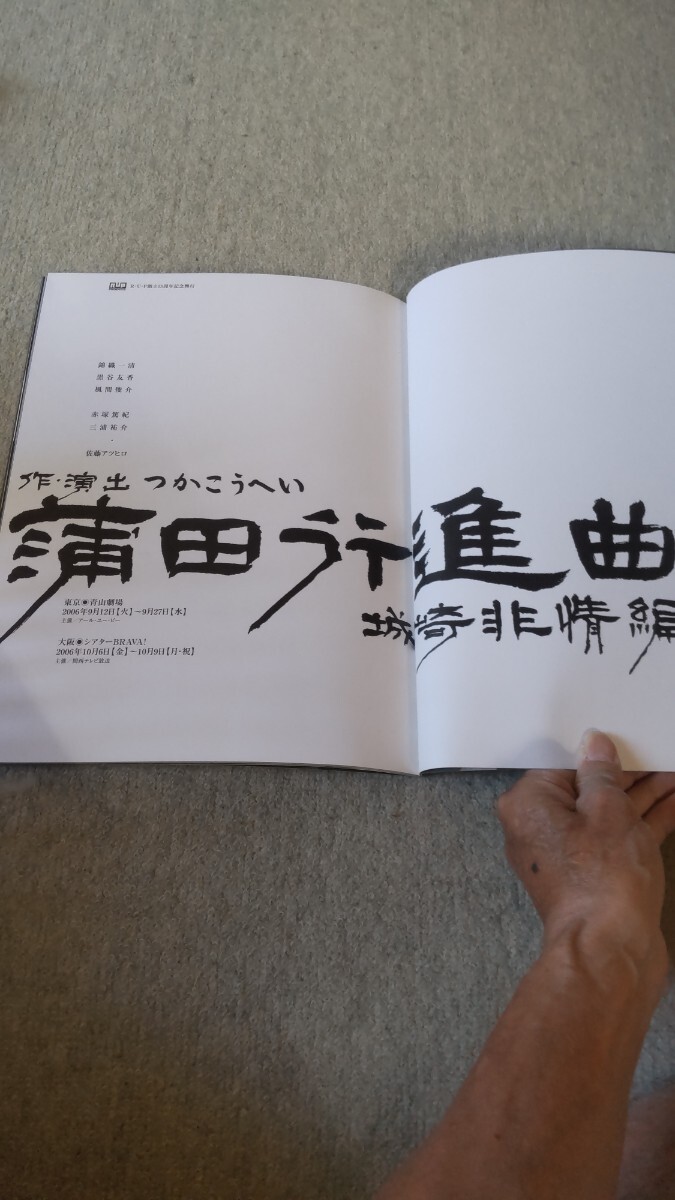 R・U・P設立15周年記念興行
錦織一清
黒谷友香
風間俊介
赤塚篤紀
三浦祐介
・
佐藤アツヒロ
作・演出 つかこうへい
蒲田行進曲
城崎非情編
東京◉青山劇場
2006年9月12日【火】~9月27日【水】
主催/アール・ユー・ピー
大阪◉シアターBRAVA!
2006年10月6日【金】~10月9日【月・祝】
主催/関西テレビ放送